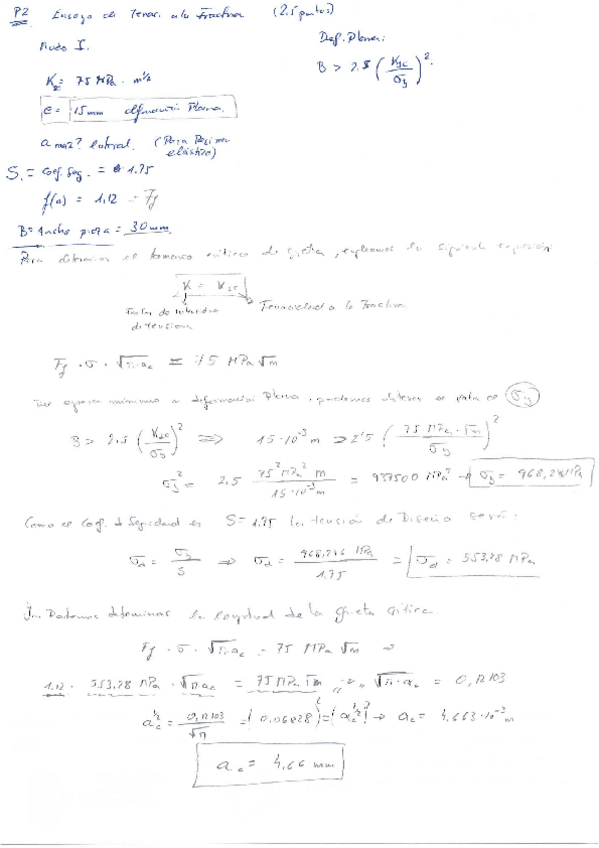 P2 Ensayo de Tenac. a la Fractura (2.5 puntos)
Modo I. Def. Plana:
K_I = 75 MPa · m^1/2 B > 2.5 (K_IC / σ_y)^2
e = 15 mm deformación Plana.
a max? lateral. (Para Régimen elástico)
S. = Coef. Seg. = 1.75
f(a) = 1,12 = Ff
B = Ancho pieza = 30 mm.
Para determinar el tamaño crítico de grieta, empleamos la siguiente expresión
K = K_IC
Factor de intensidad de tensiones Tenacidad a la Fractura
Ff · σ · √(π·a_c) = 75 MPa √m
espesor mínimo a deformación Plana, podemos obtener σ_y
B > 2.5 (K_IC / σ_y)^2 ⇒ 15·10^-3 m > 2'5 (75 MPa · √m / σ_y)^2
σ_y^2 = 2,5 75^2 MPa^2 m / 15·10^-3 m = 937500 MPa^2 → σ_y = 968,24 MPa
Como el Coef. de Seguridad es S = 1.75 la tensión de Diseño será:
σ_d = σ_y / S ⇒ σ_d = 968,246 MPa / 1.75 = σ_d = 553,28 MPa
Podemos determinar la longitud de la grieta crítica.
Ff · σ · √(π·a_c) = 75 MPa √m ⇒
1.12 · 553,28 MPa · √(π·a_c) = 75 MPa √m √(π·a_c) = 0,12103
a_c^1/2 = 0,12103 / √π = (0,06828)^2 = (a_c^1/2)^2 → a_c = 4,663·10^-3 m
a_c = 4,66 mm